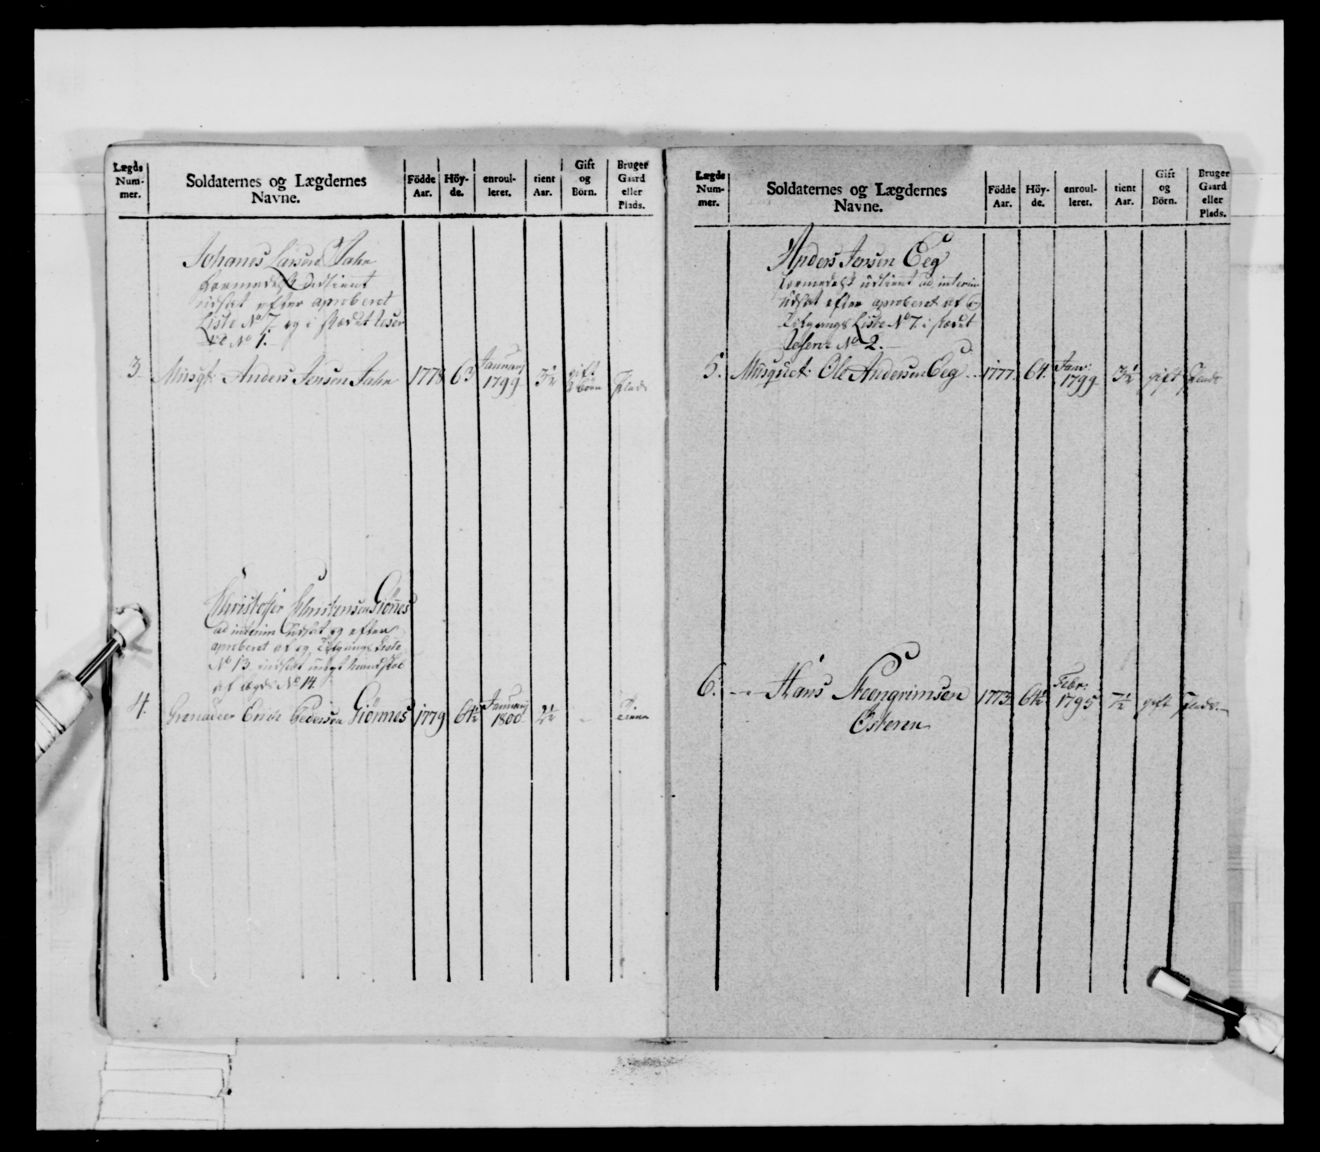 Lægds
Num-
mer.
Soldaternes og Lægdernes
Navne.
Födde
Aar.
Höy-
de.
enroul-
leret.
tient
Aar.
Gift
og
Börn.
Bruger
Gaard
eller
Plads.
Johanes Larsen
udtient
udsat efter aproberet
Liste No 7. og i stædet
No 1.
3. Musqt Anders Jensen 1778 63 January 1799 3½ gift Plads
Christofer Christensen Giönes
ad interim udsat og efter
aproberet afgangs Liste
No 13 indsat
af lægd No 14
4. Grenadeer Pedersen Giönnes 1779 64½ January 1800 2½ –
Lægds
Num-
mer.
Soldaternes og Lægdernes
Navne.
Födde
Aar.
Höy-
de.
enroul-
leret.
tient
Aar.
Gift
og
Börn.
Bruger
Gaard
eller
Plads.
Anders Jensen Eeg
udtient ad interim
udsat efter aproberet
Liste No 7. i stædet
No 2.
5. Musquet: Ole Andersen Eeg 1777. 64. Janr: 1799 3½ gift Plads
6. Hans Steengrimsen 1773. 64½ Febr: 1795 7½ gift Plads
Österen